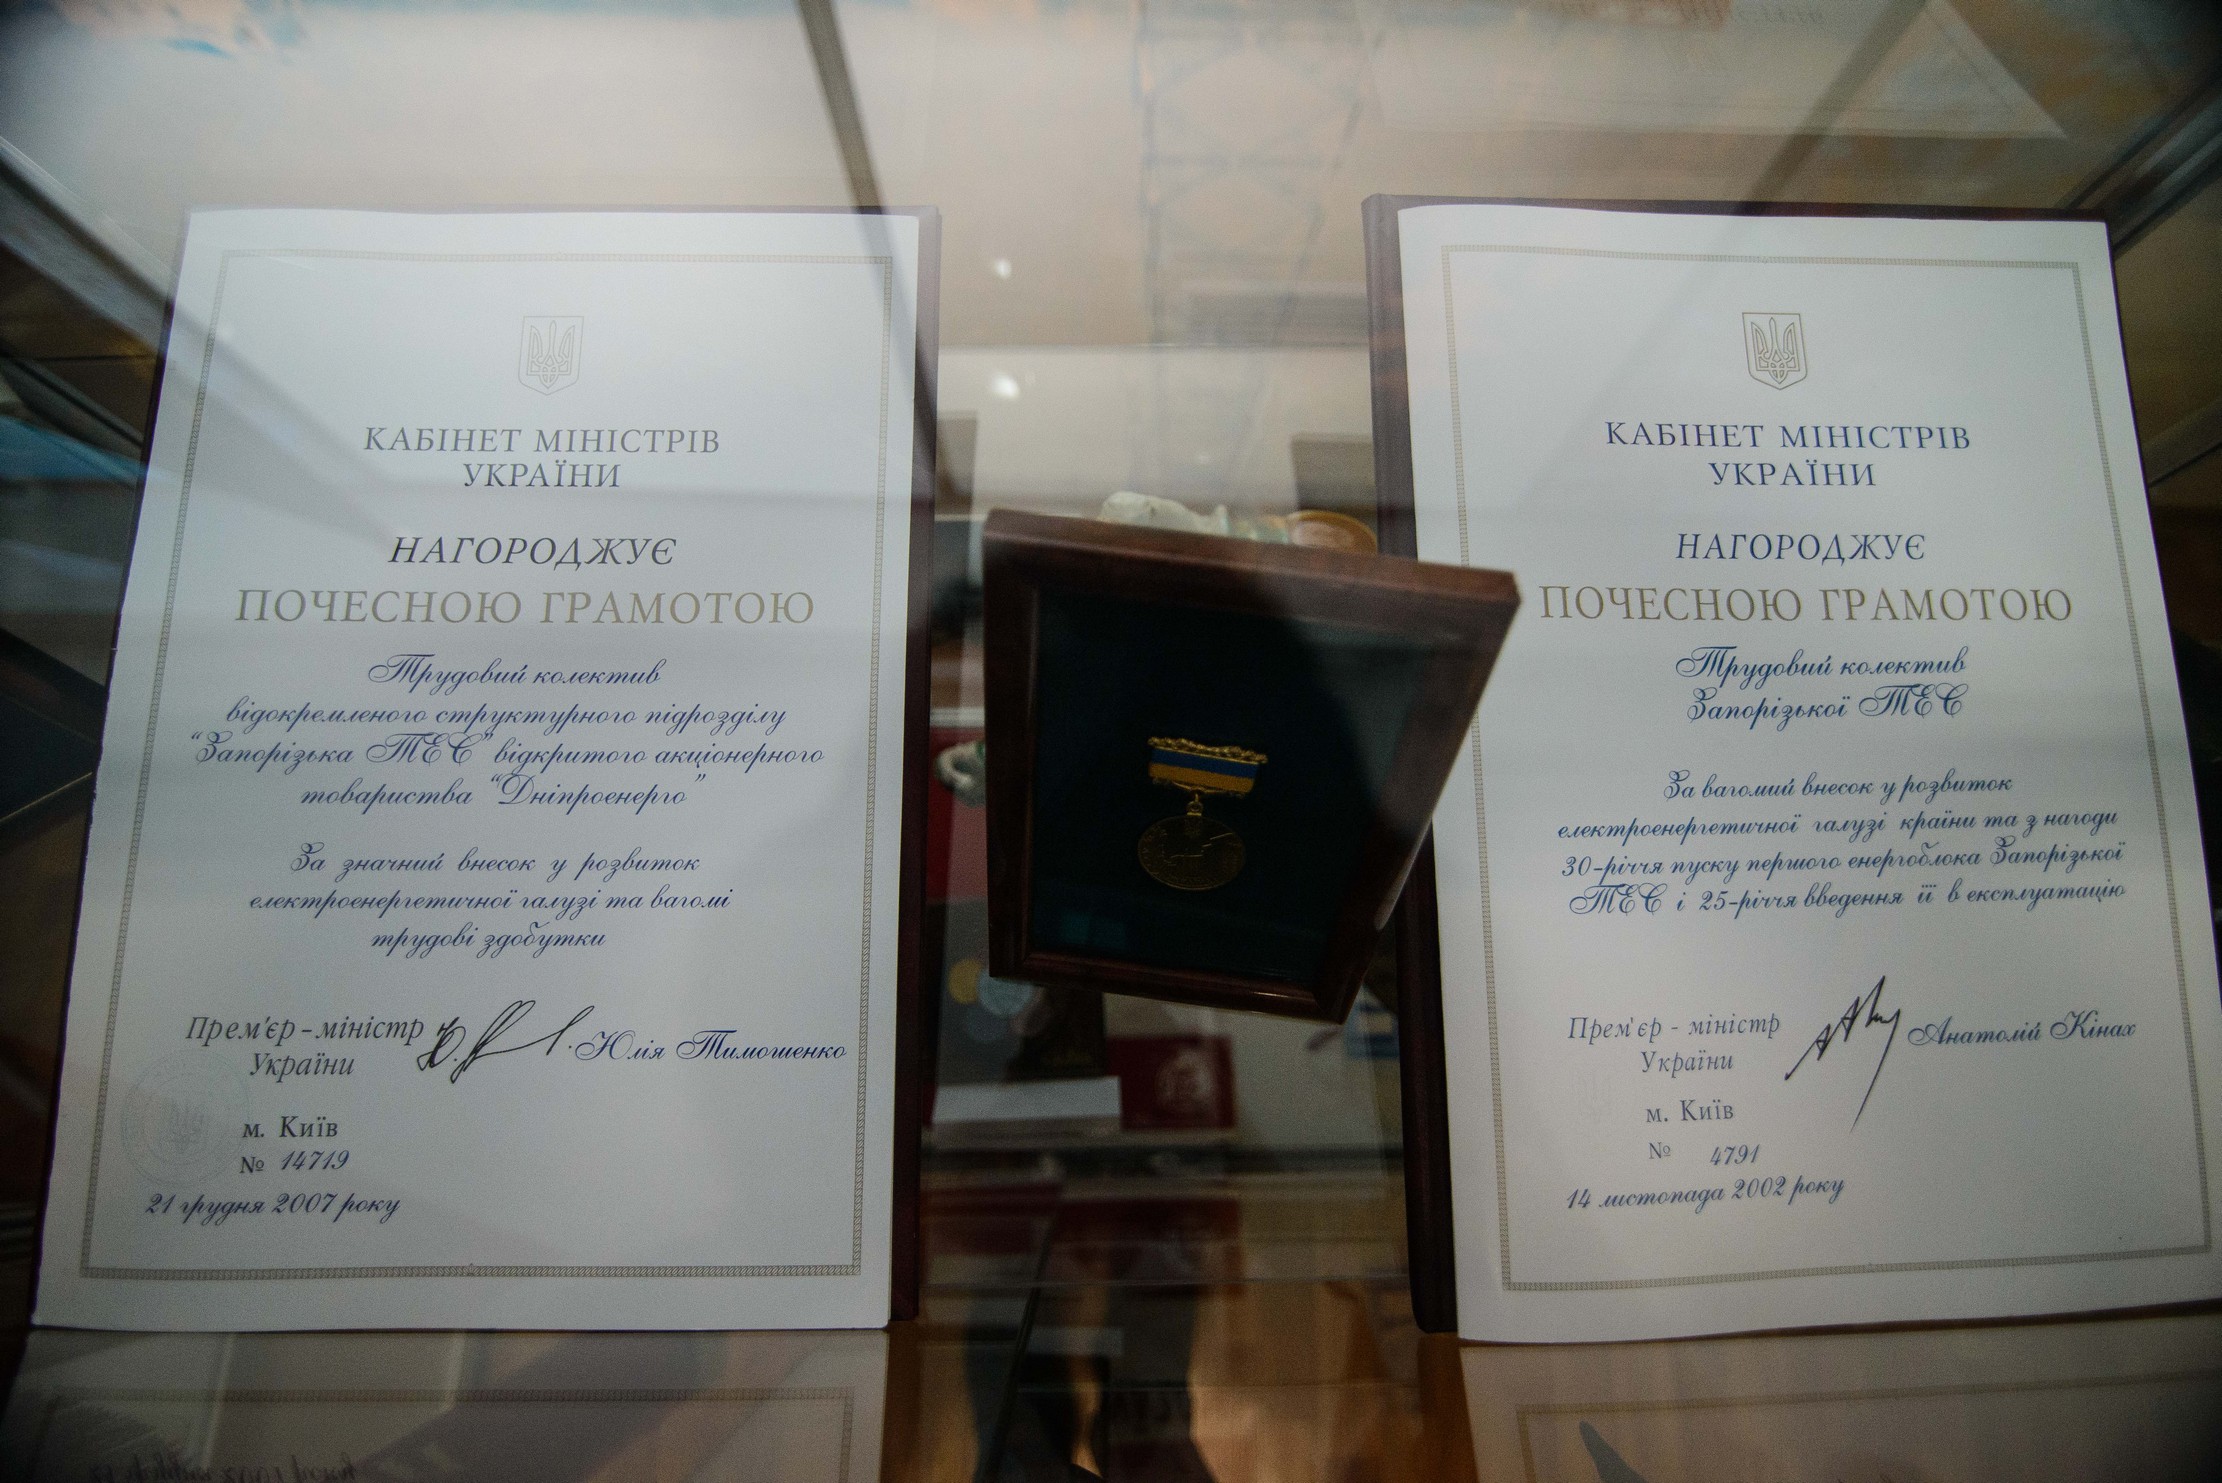 КАБІНЕТ МІНІСТРІВ
УКРАЇНИ
НАГОРОДЖУЄ
ПОЧЕСНОЮ ГРАМОТОЮ
Трудовий колектив
відокремленого структурного підрозділу
“Запорізька ТЕС” відкритого акціонерного
товариства “Дніпроенерго”
За значний внесок у розвиток
електроенергетичної галузі та вагомі
трудові здобутки
Прем'єр-міністр
України
Юлія Тимошенко
м. Київ
№ 14719
21 грудня 2007 року
КАБІНЕТ МІНІСТРІВ
УКРАЇНИ
НАГОРОДЖУЄ
ПОЧЕСНОЮ ГРАМОТОЮ
Трудовий колектив
Запорізької ТЕС
За вагомий внесок у розвиток
електроенергетичної галузі країни та з нагоди
30-річчя пуску першого енергоблока Запорізької
ТЕС і 25-річчя введення її в експлуатацію
Прем'єр - міністр
України
Анатолій Кінах
м. Київ
№ 4791
14 листопада 2002 року